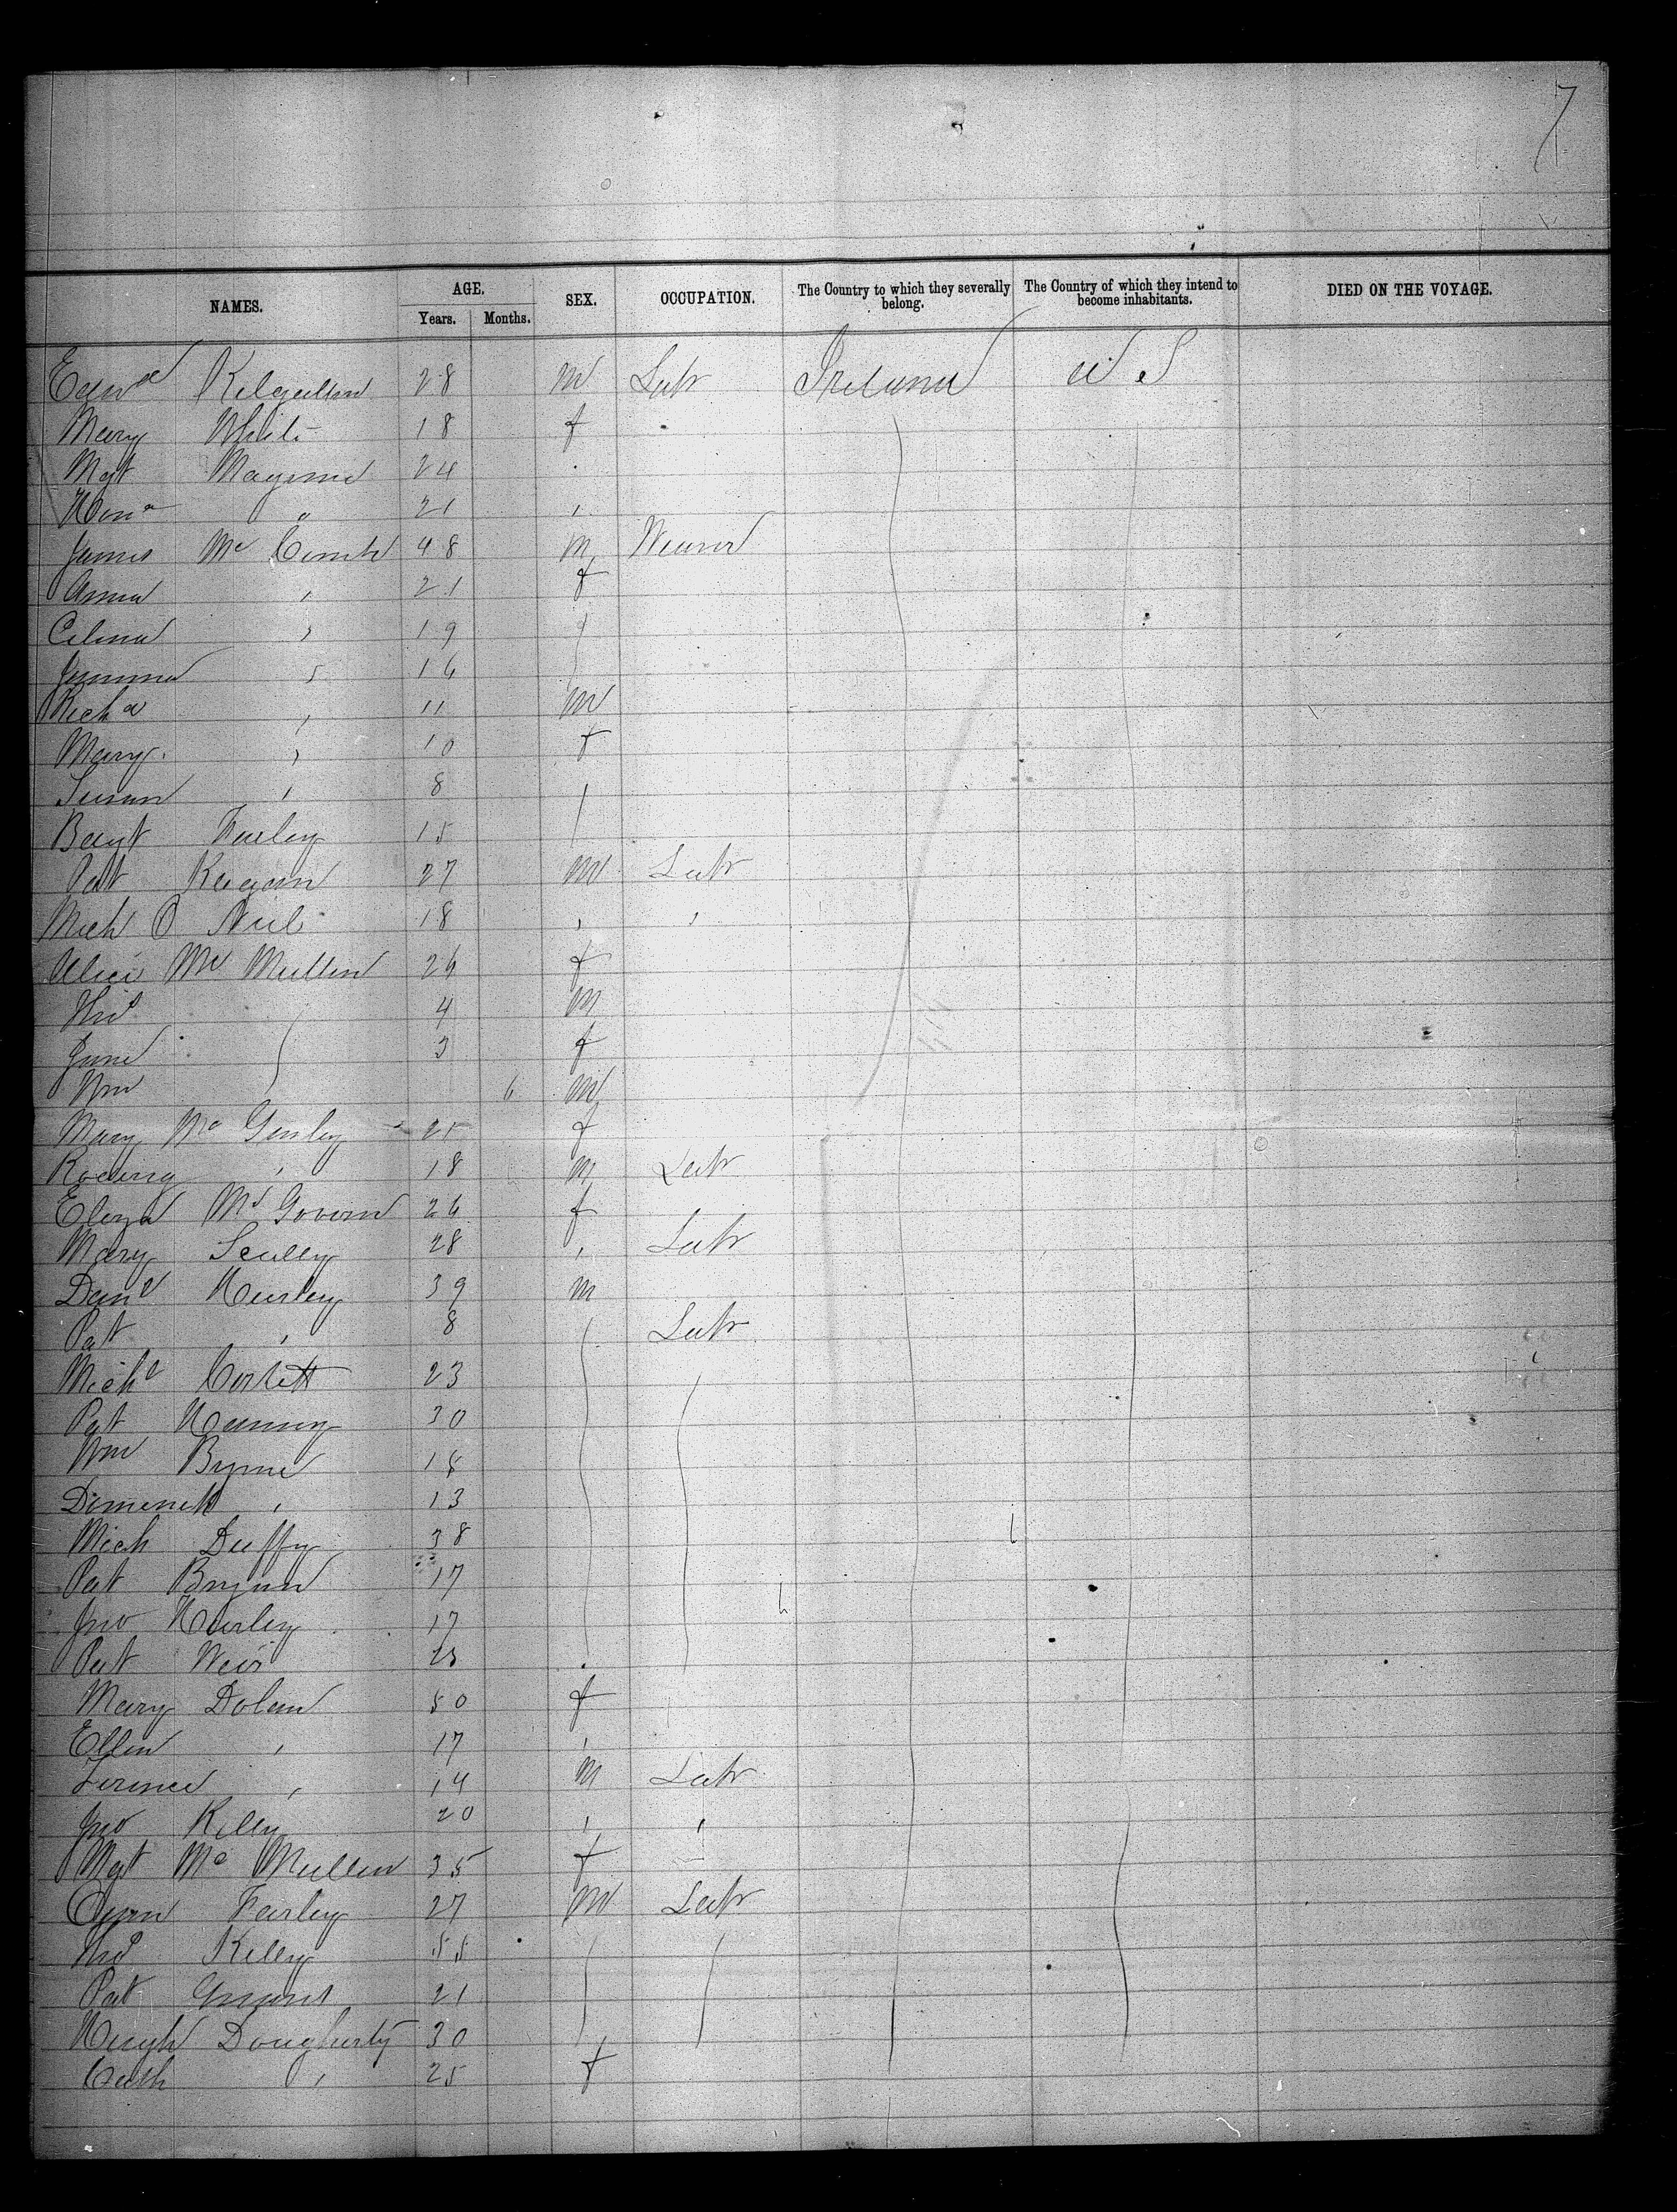 7
NAMES. AGE. Years. Months. SEX. OCCUPATION. The Country to which they severally belong. The Country of which they intend to become inhabitants. DIED ON THE VOYAGE.
Edwd 28 M Labr Ireland U.S
Mary White 18 f
Mgt 24
Hona " 21 ,
James Mc Comb 48 M Weaver
Anna , 21 f
Celina , 19
Jemima , 16
Richd , 11 M
Mary , 10 f
Susan , 8
Farley 15
Pat Keegan 27 M Labr
Mich O Neil 18 , ,
Alice Mc Mullen 26 f
Thos 4 M
Jane 3 f
Wm 6 M
Mary Mc Ginley 25 f
, 18 M Labr
Eliza Mc Govern 26 f
Mary Scully 28 , Labr
Danl Hurley 39 M
Pat , 8 Labr
Michl Corbett 23
Pat 30
Wm Byrne 18
Dominick , 13
Mich Duffy 38
Pat 17
Jno Hurley 17
Pat Weir
Mary Dolan 50 f
Ellen , 17 ,
Terence , 14 M Labr
Jno Kelly 20 , ,
Mgt Mc Mullen 35 f
Owen Farley 27 M Labr
Thos Kelly 55
Pat 21
Hugh Dougherty 30
Cath , 25 f